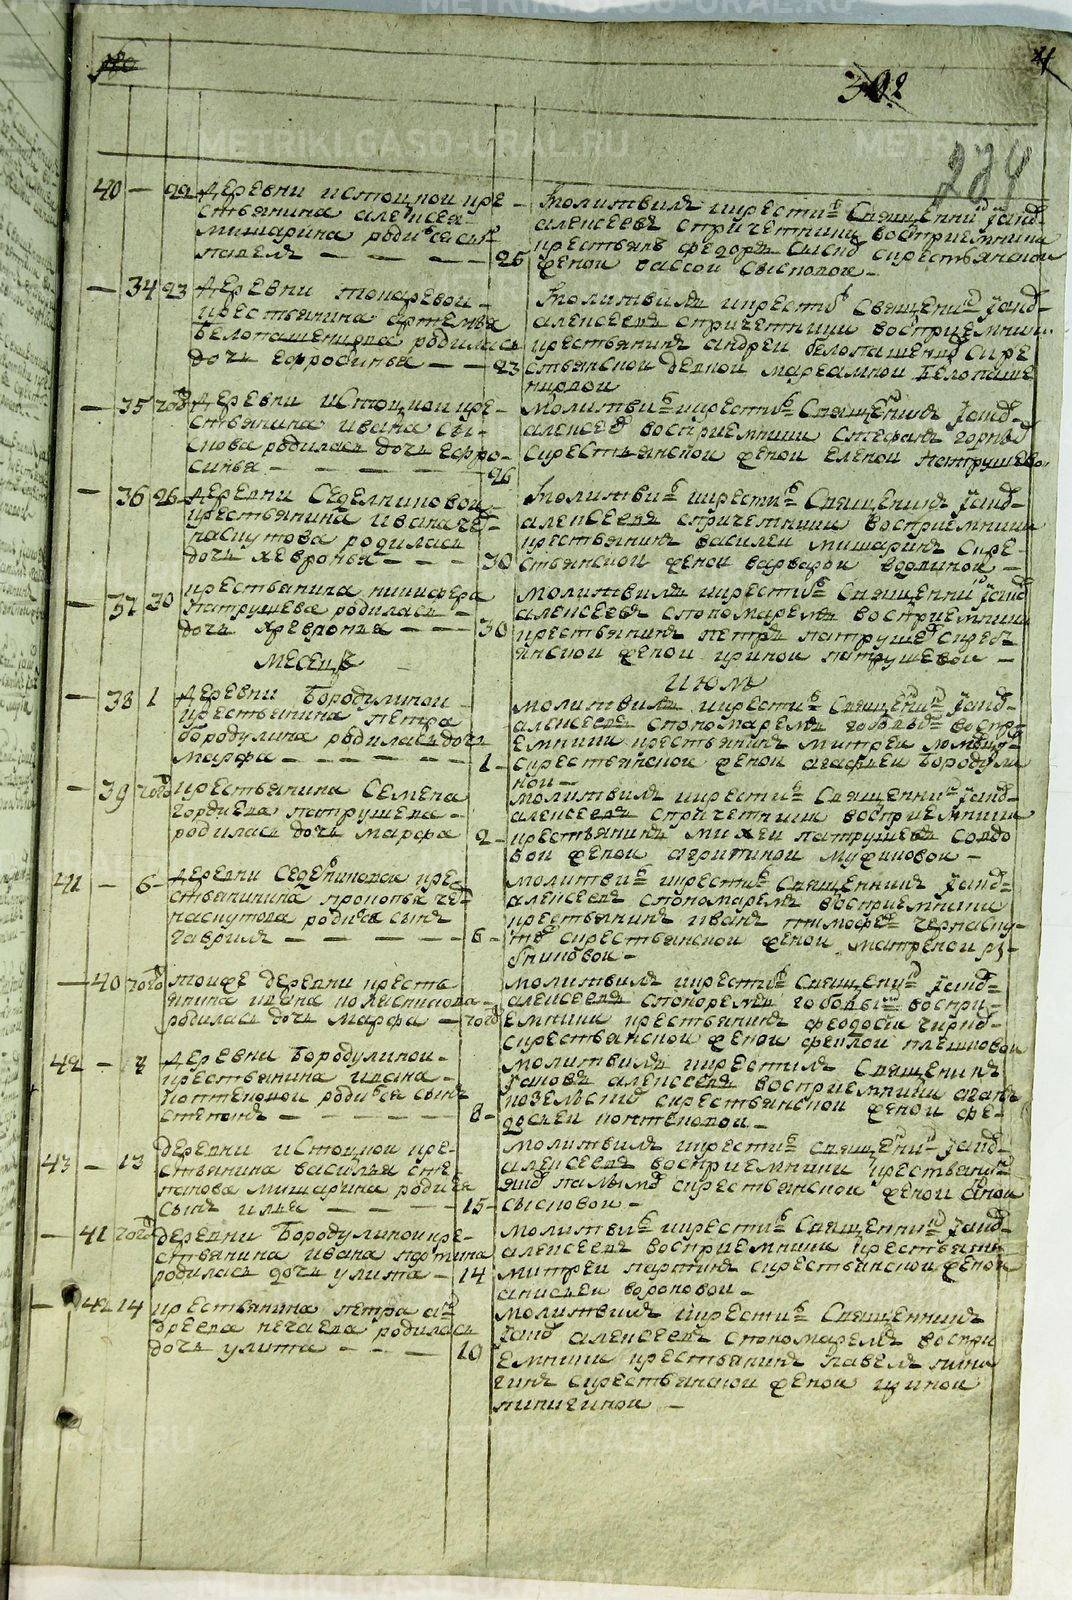 302
41
234
40 — 22 деревни истоцкои кре
стьянина алексея
мишарина родился сынъ
павелъ — — — — 25
молитвилъ икрести Священни Іакѡ
алексеевъ спричетники восприемники
крестьянъ федоръ сысковъ скрестьянскои
женои вассои сысковои —
— 34 23 деревни токаревои
крестьянина артемья
белопашенцова родилась
дочь ефросинья — — 23
молитвилъ икрести Священни Іакѡ
алексеевъ спричетники восприемники
крестьянинъ андреи белопашенцо скре
стьянскои девкои марѳамнои белопаше
нцовои
— 35 того деревни истоцкои кре
стьянина ивана сы
скова родилась дочь ефро
синья — — — — 26
молитви икрести Священникъ Іакѡ
алексеевъ восприемники стефанъ
скрестьянскои женои еленои патрушево
— 36 26 деревни Седелниковои
крестьянина ивана че
паснутова родилась
дочь хевронья — — — 30
молитви икрести Священникъ Іакѡ
алексеевъ спричетники восприемники
крестьянинъ василеи мишаринъ скре
стьянскои женои варварои —
— 37 30 крестьянина никифера
патрушева родилась —
дочь хевронья — — 30
молитвилъ икрести Священни Іакѡ
алексеевъ спономаремъ восприемники
крестьянинъ петръ патруше скрест
янскои женои ириной патрушевои —
месецъ июль
— 38 1 деревни Бородулинои
крестьянина петра
бородулина родилась дочь
марфа — — — — — 1
молитвилъ икрести Священни Іакѡ
алексеевъ спономаремъ воспри
емники крестьянинъ митреи
скрестьянскои женои агафьеи бородули
нои —
— 39 того крестьянина Семена
гордиева патрушева —
родилась дочь марфа — 2
молитвилъ икрести Священни Іакѡ
алексеевъ спричетники восприемники
крестьянинъ михеи патрушевъ совдо
вои женои агрипинои
41 — 6 деревни Седелникова кре
стьянина прокопья че
паснутова родился сынъ
гаврилъ — — — — 6
молитви икрести Священникъ Іакѡ
алексеевъ спономаремъ восприемники
крестьянинъ иванъ тимофее черпасну
товъ скрестьянскои женои матренои
— 40 того тоиже деревни кресть
янина ивана
родилась дочь марфа — того
молитвилъ икрести Священни Іакѡ
алексеевъ спономаремъ воспри
емники крестьянинъ феодоси
скрестьянскои женои феклои плешковои
42 — 7 деревни Бородулинои —
крестьянина ивана —
коптеловои родился сынъ
степанъ — — — — 8
молитвилъ икрестилъ Священникъ
Іаковъ алексеевъ восприемники
скрестьянскои женои фе
досьеи коптеловои —
43 — 13 деревни истоцкои кре
стьянина василья сте
панова мишарина родился
сынъ илья — — — — 15
молитвилъ икрести Священни Іакѡ
алексеевъ восприемники крестьяни
скрестьянскои женои
сысковои —
— 41 того деревни Бородулинои кре
стьянина ивана партина
родилась дочь улита — 14
молитви икрести Священни Іакѡ
алексеевъ восприемники крестьяни
митреи партинъ скрестьянскои женои
анисьеи вороновои —
— 42 14 крестьянина петра ан
дреева нечаева родилась
дочь улита — — — 10
молитвилъ икрести Священникъ
Іакѡ алексеевъ спономаремъ воспри
емники крестьянинъ павелъ пини
гинъ скрестьянскои женои иринои
пинигинои —
METRIKI.GASO-URAL.RU